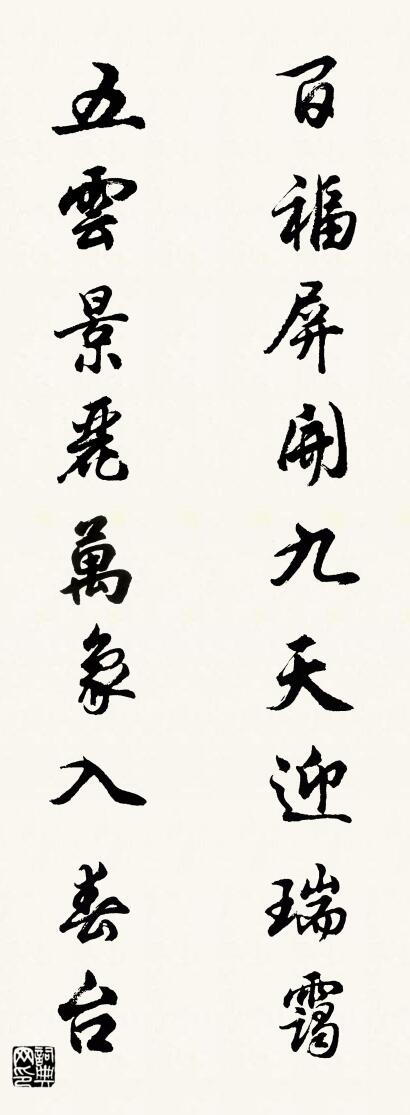 百福屏開九天迎瑞靄
五雲景麗萬象入春台
詞典网印